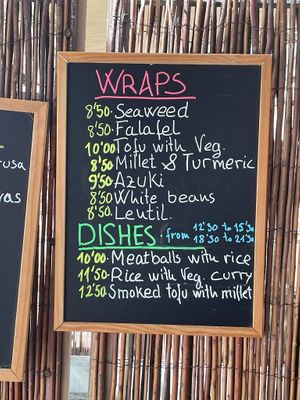 WRAPS
8'50. Seaweed
8'50. Falafel
10'00 Tofu with Veg.
8'50. Millet & Turmeric
9'50. Azuki
8'50. White beans
8'50. Lentil.
DISHES. from 12'30 to 15'30
18'30 to 21'30
10'00. Meatballs with rice
11'50. Rice with Veg. curry
12'50. Smoked tofu with millet
rusa
vas